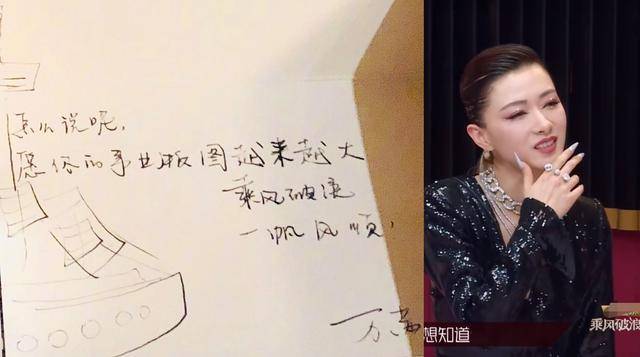 怎么说呢，
愿你的事业版图越来越大
乘风破浪
一帆风顺，
万茜
想知道
乘风破浪